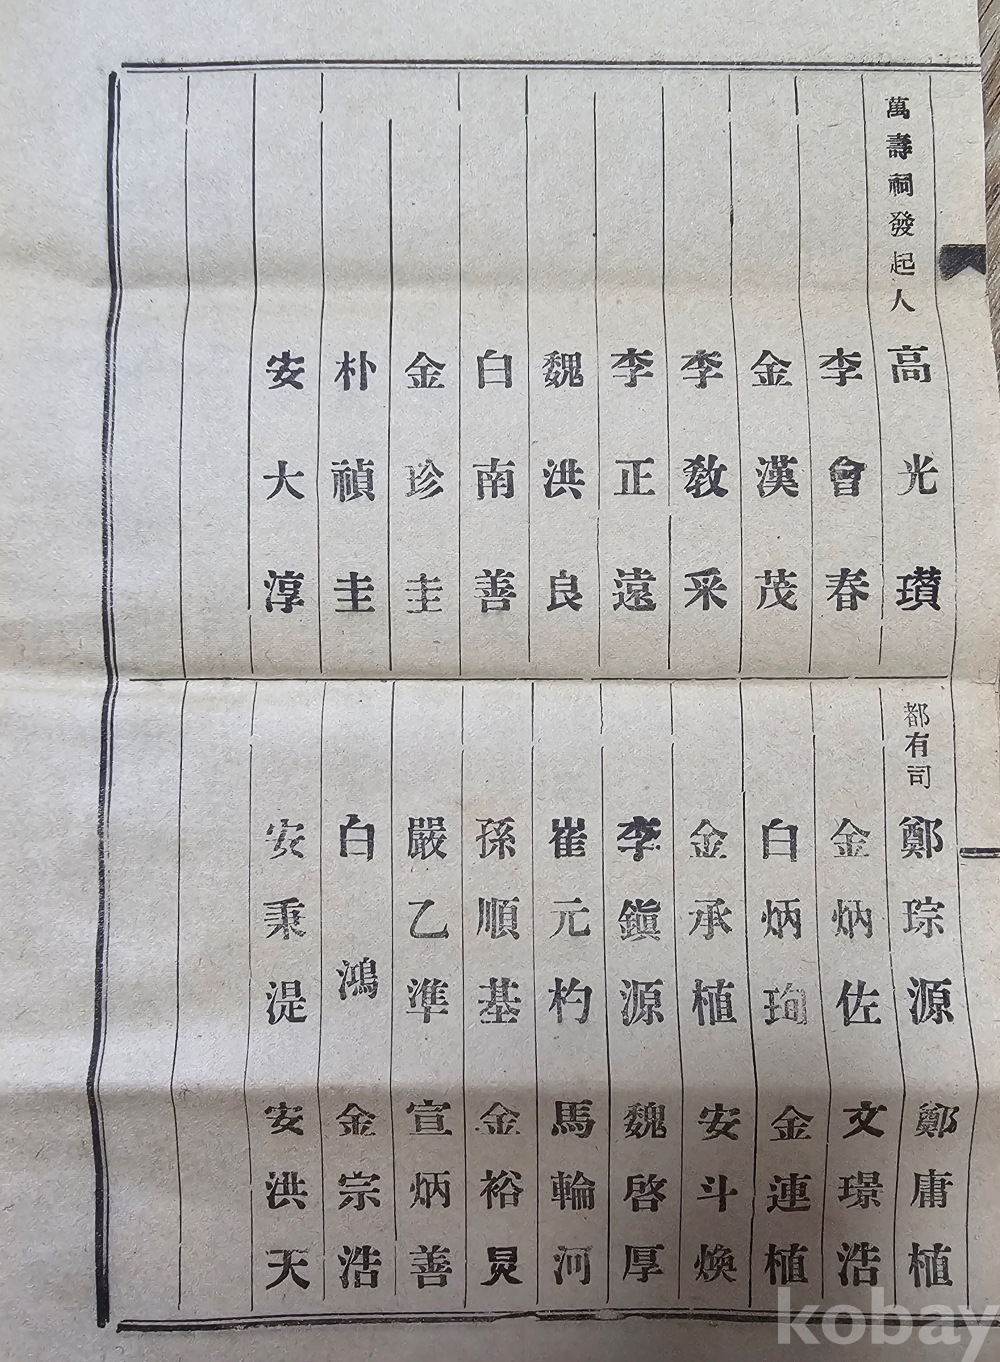 萬壽祠發起人 高光瓚
李會春
金漢茂
李敎采
李正遠
魏洪良
白南善
金珍圭
朴禎圭
安大淳
都有司 鄭琮源 鄭庸植
金炳佐 文璟浩
白炳珣 金連植
金承植 安斗煥
李鎭源 魏啓厚
崔元杓 馬輪河
孫順基 金裕炅
嚴乙準 宣炳善
白鴻 金宗浩
安秉湜 安洪天
kobay